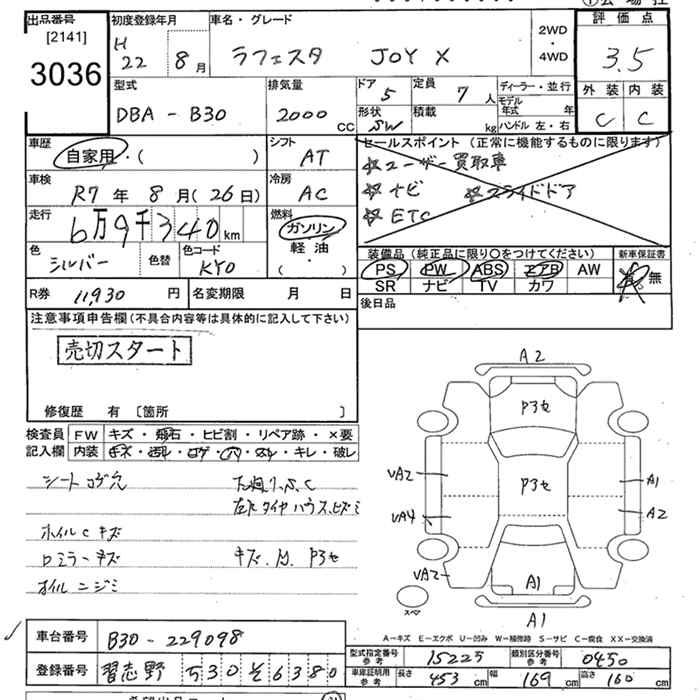 出品番号 [2141] 3036
初度登録年月 H 22 8月
車名・グレード ラフェスタ JOY X
2WD・4WD
評価点 3.5
型式 DBA - B30
排気量 2000 CC
ドア 5 定員 7人
形状 SW 積載 kg
ディーラー・並行
モデル年式 年
ハンドル 左・右
外装 内装
C C
車歴 自家用・( )
シフト AT
車検 R7年 8月(26日)
冷房 AC
走行 6万9千340km
燃料 ガソリン・軽油・( )
色 シルバー 色替 色コード KY0
セールスポイント(正常に機能するものに限ります)
☆ユーザー買取車
☆ナビ ☆スライドドア
☆ETC
装備品(純正品に限り○をつけてください) 新車保証書
PS PW ABS エアB AW 有・無
SR ナビ TV カワ
R券 11,930円 名変期限 月 日
後日品
注意事項申告欄(不具合内容等は具体的に記入して下さい)
売切スタート
修復歴 有 〔箇所 〕
検査員 FW キズ・飛石・ヒビ割・リペア跡・×要
記入欄 内装 キズ・汚れ・コゲ・穴・スレ・キレ・破レ
シートコゲ穴
左化タイヤハウス、ヒズミ
ホイルCキズ
ロミラーキズ キズ.M. P3セ
オイルニジミ
A2
P3セ
UA2 P3セ A1
UA4 A2
UA2 A1
スペア
A1
A-キズ E-エクボ U-凹み W-補修跡 S-サビ C-腐食 XX-交換済
車台番号 B30-229098
登録番号 習志野 530 そ 6380
型式指定番号 参考 15225 類別区分番号 参考 0450
車庫証明用 参考 長さ 453 cm 幅 169 cm 高さ 160 cm